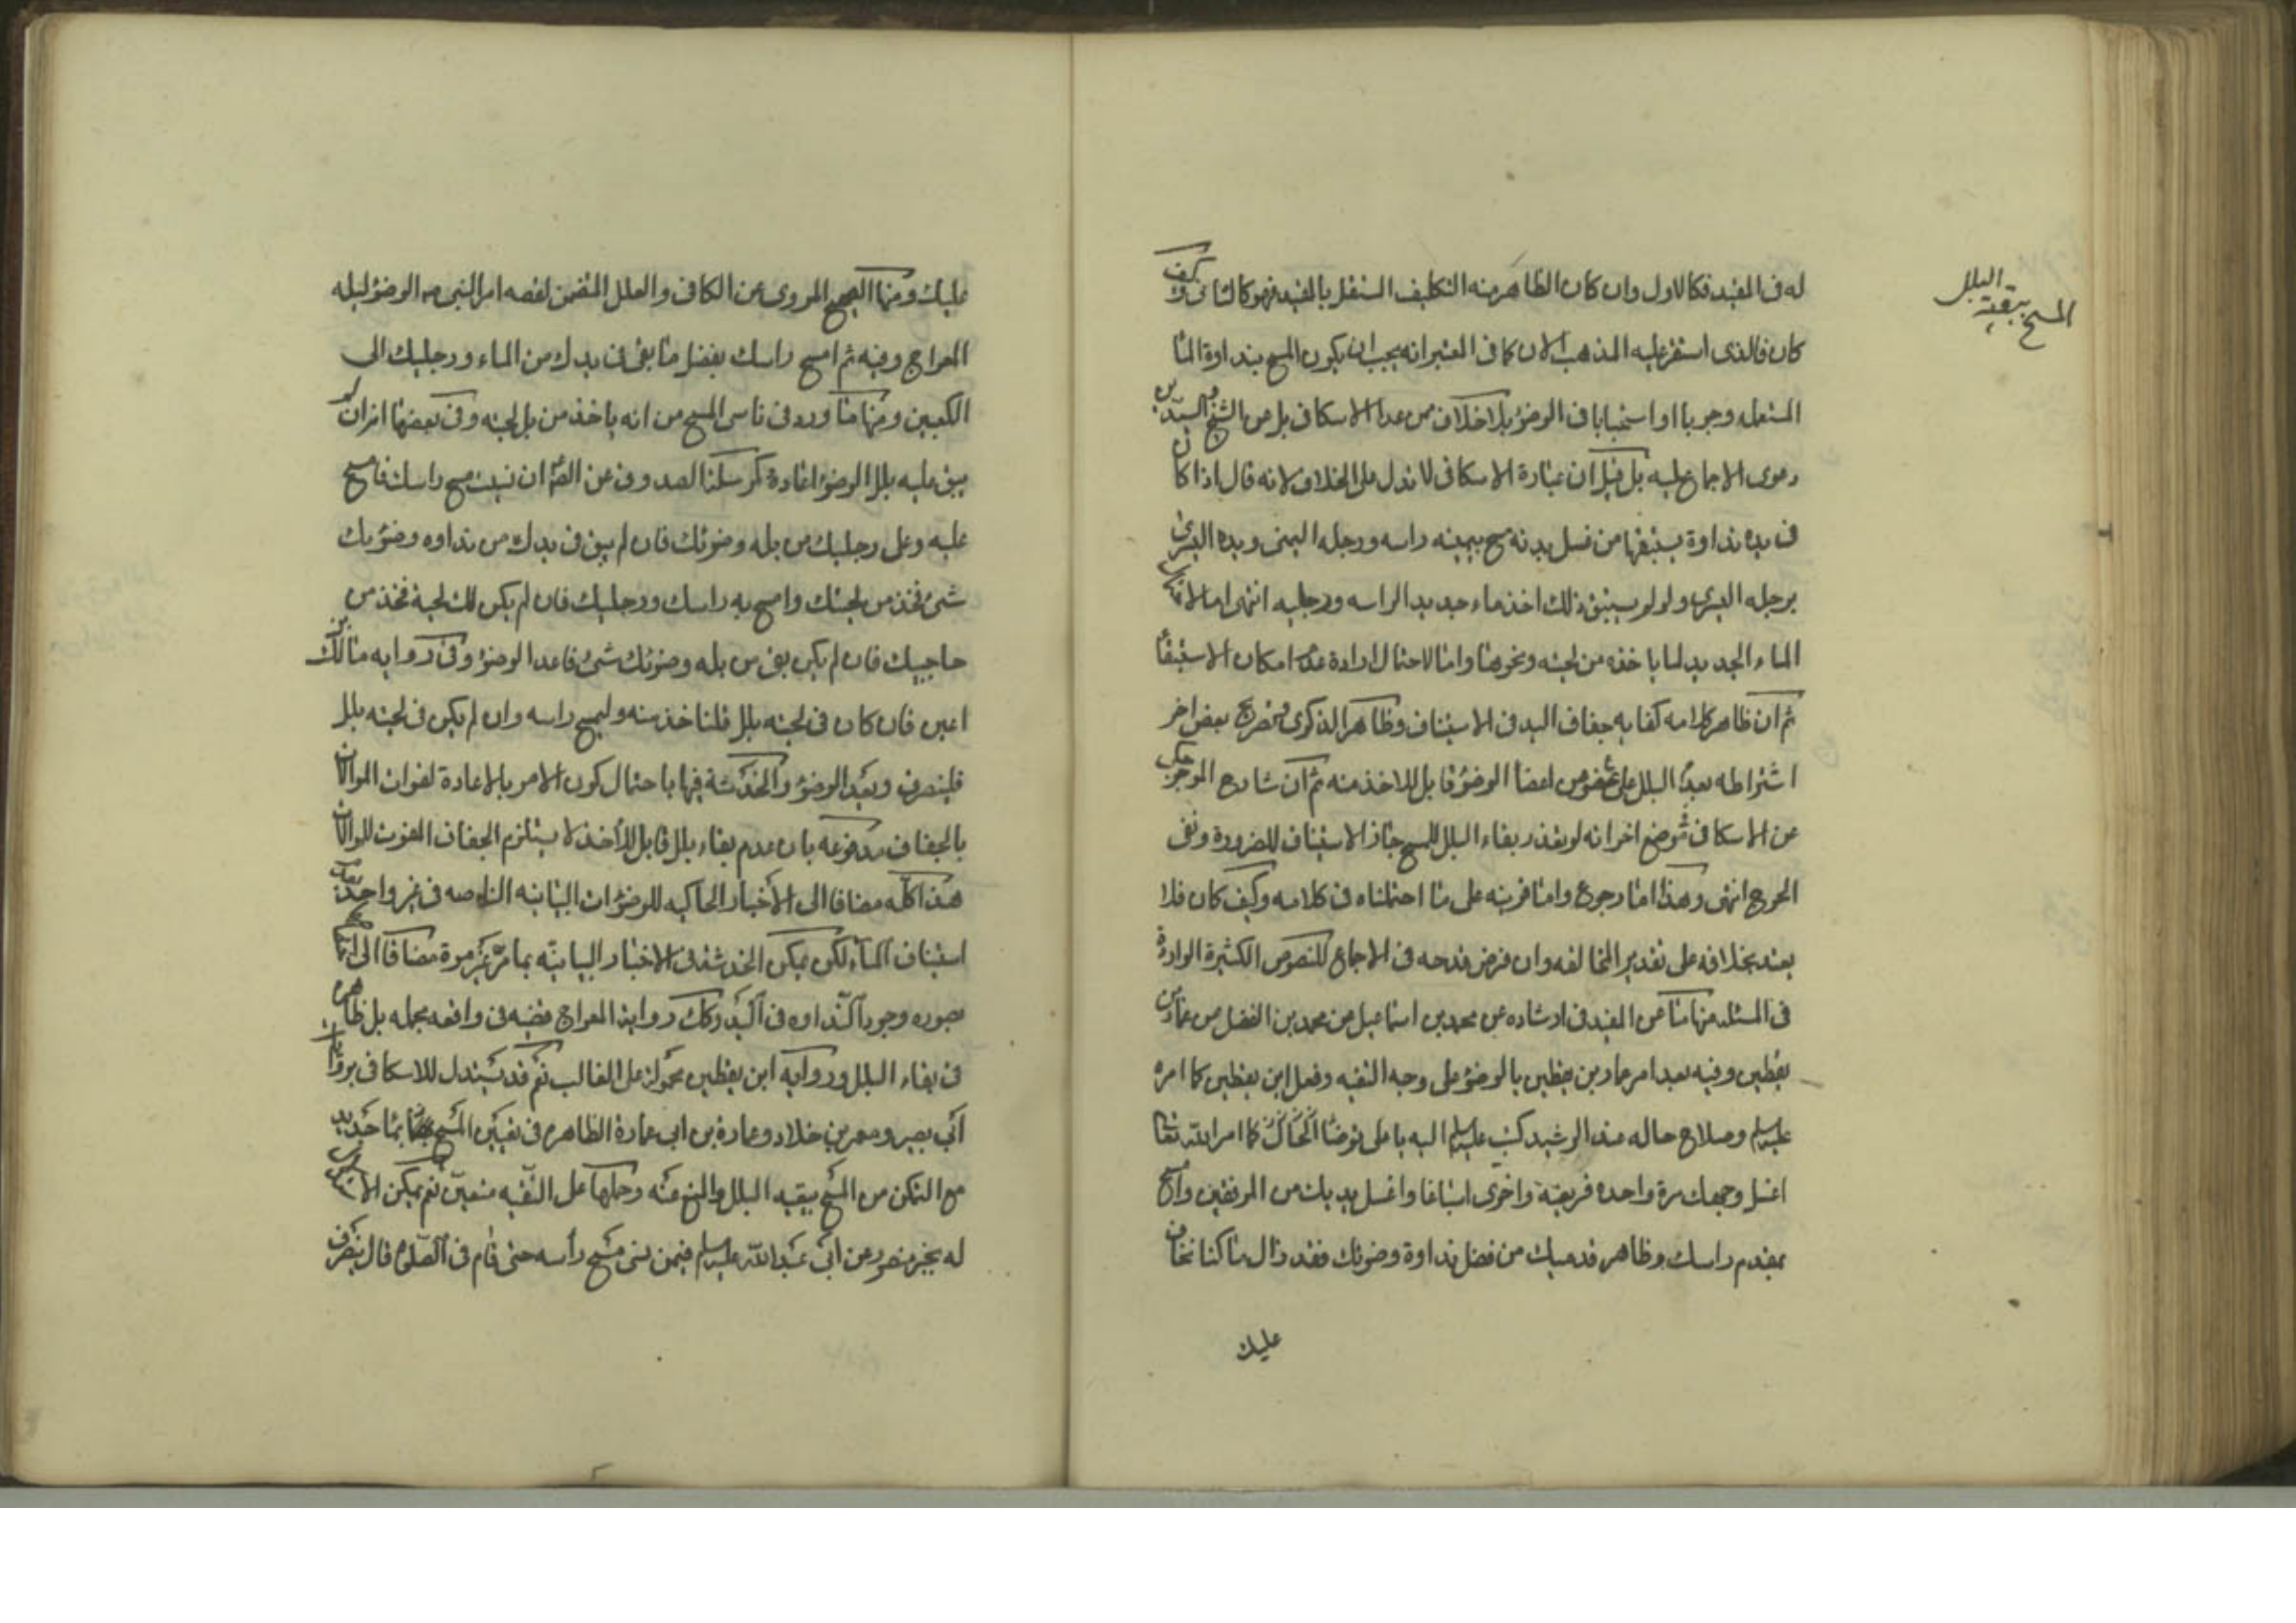 المسح ببقية البلل
له فى المقيد فكالاول وان كان الظاهر منه التكليف المستقل بالمقيد فهو كالثانى وكيف
كان فالذى استقر عليه المذهب الان كما فى المعتبر انه يجب ان يكون المسح بنداوة الماء
المستعمله وجوبا او استحبابا فى الوضوء بلا خلاف ممن عدا الاسكافى بل عن الشيخ والسيدين
دعوى الاجماع عليه بل قيل ان عبارة الاسكافى لا تدل على الخلاف لانه قال اذا كان
فى يده نداوة يستبقها من غسل يديه مسح بيمينه راسه ورجله اليمنى وبيده اليسرى
برجله اليسرى ولو لم يستبق ذلك اخذ ماء جديد الراسه ورجليه انتهى اما
الماء الجديد لما ياخذه من لحيته ونحوها واما لاحتمال ارادة عدم امكان الاستبقاء
ثم ان ظاهر كلامه كفاية جفاف اليد فى الاستيناف وظاهر الذكرى وصريح بعض اخر
اشتراطه بعدم البلل على عضو من اعضاء الوضوء قابل للاخذ منه ثم ان شارح الموجز حكى
عن الاسكافى فى موضع اخر انه لو تعذر بقاء البلل للمسح جاز الاستيناف للضرورة ونفى
الحرج انتهى وهذا اما رجوع واما قرينه على ما احتملناه فى كلامه وكيف كان فلا
يعتد بخلافه على تقدير المخالفه وان فرض قدحه فى الاجماع للنصوص الكثيرة الواردة
فى المسئله منها ما عن المفيد فى ارشاده عن محمد بن اسماعيل عن محمد بن الفضل عن
يقطين وفيه بعد امر على بن يقطين بالوضوء على وجه التقيه وفعل ابن يقطين كما امره
عليه السلم وصلاح حاله عند الرشيد كتب عليه السلم اليه يا على توضا كما امر الله تعالى
اغسل وجهك مرة واحده فريضة واخرى اسباغا واغسل يديك من المرفقين وامسح
بمقدم راسك وظاهر قدميك من فضل نداوة وضوئك فقد زال ما كنا نخاف
عليك
عليك ومنها الصحيح المروى عن الكافى والعلل المتضمن لقصه امر النبى ص بالوضوء ليله
المعراج وفيه ثم امسح راسك بفضل ما بقى فى يدك من الماء ورجليك الى
الكعبين ومنها ما ورد فى ناسى المسح من انه ياخذ من بل لحيته وفى بعضها انه ان لم
يبق عليه بلل الوضوء اعاده كمرسلة الصدوق عن الصادق ان نسيت مسح راسك فامسح
عليه وعلى رجليك من بله وضوئك فان لم يبق فى يدك من نداوه وضوئك
شىء فخذ من لحيتك وامسح به راسك ورجليك فان لم يكن لك لحية فخذ من
حاجبيك فان لم يكن بقى من بله وضوئك شىء فاعد الوضوء وفى روايه مالك بن
اعين فان كان فى لحيته بلل فلياخذ منه وليمسح راسه وان لم يكن فى لحيته بلل
فلينصرف وليعد الوضوء والخدشة فيها باحتمال كون الامر بالاعادة لفوات الموالاة
بالجفاف مدفوعه بان عدم بقاء بلل قابل للأخذ لا يستلزم الجفاف المفوت للموالاة
هذا كله مضافا الى الأخبار الحاكيه للوضوءات البيانيه الناصه فى غير واحد بعدم
استيناف الماء لكن يمكن الخدشه فى الاخبار البيانيّه بما مرّ غير مرة مضافا الى
بصوره وجود النداوه فى اليد وكك رواية المعراج قضيه فى واقعه مجمله بل ظاهره
فى بقاء البلل وروايه ابن يقطين محموله على الغالب نعم قد يستدل للاسكافى
ابى بصير ومعمر بن خلاد وعمارة بن ابى عمارة الظاهره فى تعيين المسح بماء جديد
مع التمكن من المسح ببقيه البلل والمنع عنه وحملها على التقيه متعين نعم يمكن
له بخبر منصور عن ابى عبد الله عليه السلم فيمن نسى مسح رأسه حتى قام فى الصلوة قال ينصرف